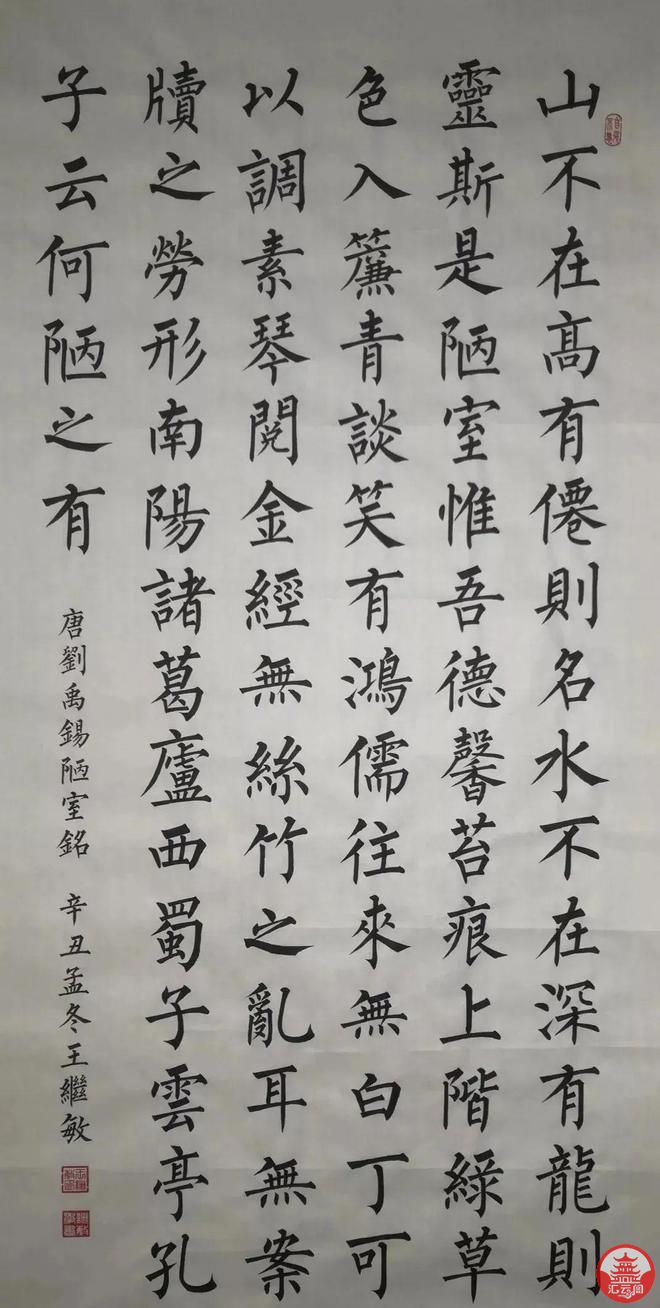 山不在髙有僊則名水不在深有龍則
靈斯是陋室惟吾德馨苔痕上階綠草
色入簾青談笑有鴻儒往來無白丁可
以調素琴閱金經無絲竹之亂耳無案
牘之勞形南陽諸葛廬西蜀子雲亭孔
子云何陋之有
唐劉禹錫陋室銘 辛丑孟冬王繼敏
汇云阁